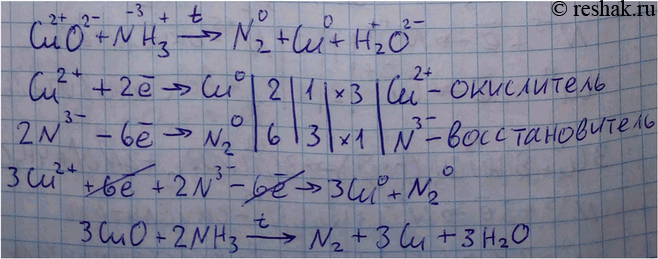 © reshak.ru
Cu²⁺O²⁻ + N⁻³H₃⁺ →ᵗ N₂⁰ + Cu⁰ + H₂⁺O²⁻
Cu²⁺ + 2ē → Cu⁰ | 2 | 1 | ×3 | Cu²⁺ – окислитель
2N³⁻ – 6ē → N₂⁰ | 6 | 3 | ×1 | N³⁻ – восстановитель
3Cu²⁺ + 6ē + 2N³⁻ – 6ē → 3Cu⁰ + N₂⁰
3CuO + 2NH₃ →ᵗ N₂ + 3Cu + 3H₂O